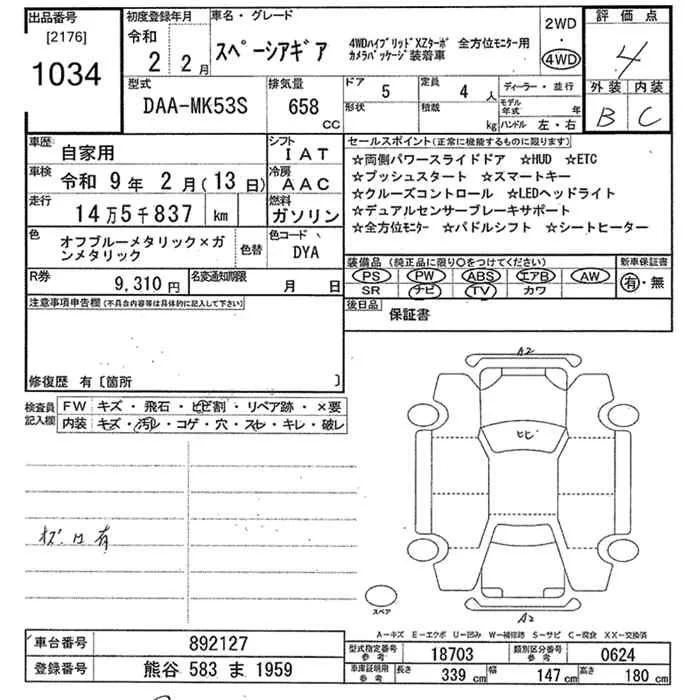 出品番号
[2176]
1034
初度登録年月
令和
2 2月
車名・グレード
スペーシアギア
4WDハイブリッドXZターボ 全方位モニター用
カメラパッケージ装着車
2WD
・
4WD
評価点
4
外装 内装
B C
型式
DAA-MK53S
排気量
658
CC
ドア
5
形状
定員
4 人
積載
kg
ディーラー・並行
モデル
年式 年
ハンドル 左・右
車歴
自家用
車検 令和 9年 2月(13日)
走行 14万5千837 km
シフト
IAT
冷房
AAC
燃料
ガソリン
色
オフブルーメタリック×ガ
ンメタリック
色替
色コード
DYA
R券
9,310円
名変通知期限
月 日
セールスポイント(正常に機能するものに限ります)
☆両側パワースライドドア ☆HUD ☆ETC
☆プッシュスタート ☆スマートキー
☆クルーズコントロール ☆LEDヘッドライト
☆デュアルセンサーブレーキサポート
☆全方位モニター ☆パドルシフト ☆シートヒーター
装備品(純正品に限り○をつけてください)
PS PW ABS エアB AW
SR ナビ TV カワ
新車保証書
有・無
後日品
保証書
注意事項申告欄(不具合内容等は具体的に記入して下さい)
修復歴 有〔箇所 〕
検査員
記入欄
FW キズ・飛石・ヒビ割・リペア跡・×要
内装 キズ・汚レ・コゲ・穴・スレ・キレ・破レ
有
A2
ヒビ
A2
スペア
A-キズ E-エクボ U-凹み W-補修跡 S-サビ C-腐食 XX-交換済
車台番号 892127
登録番号 熊谷 583 ま 1959
型式指定番号
参考
18703
類別区分番号
参考
0624
車庫証明用
参考
長さ 339 cm 幅 147 cm 高さ 180 cm